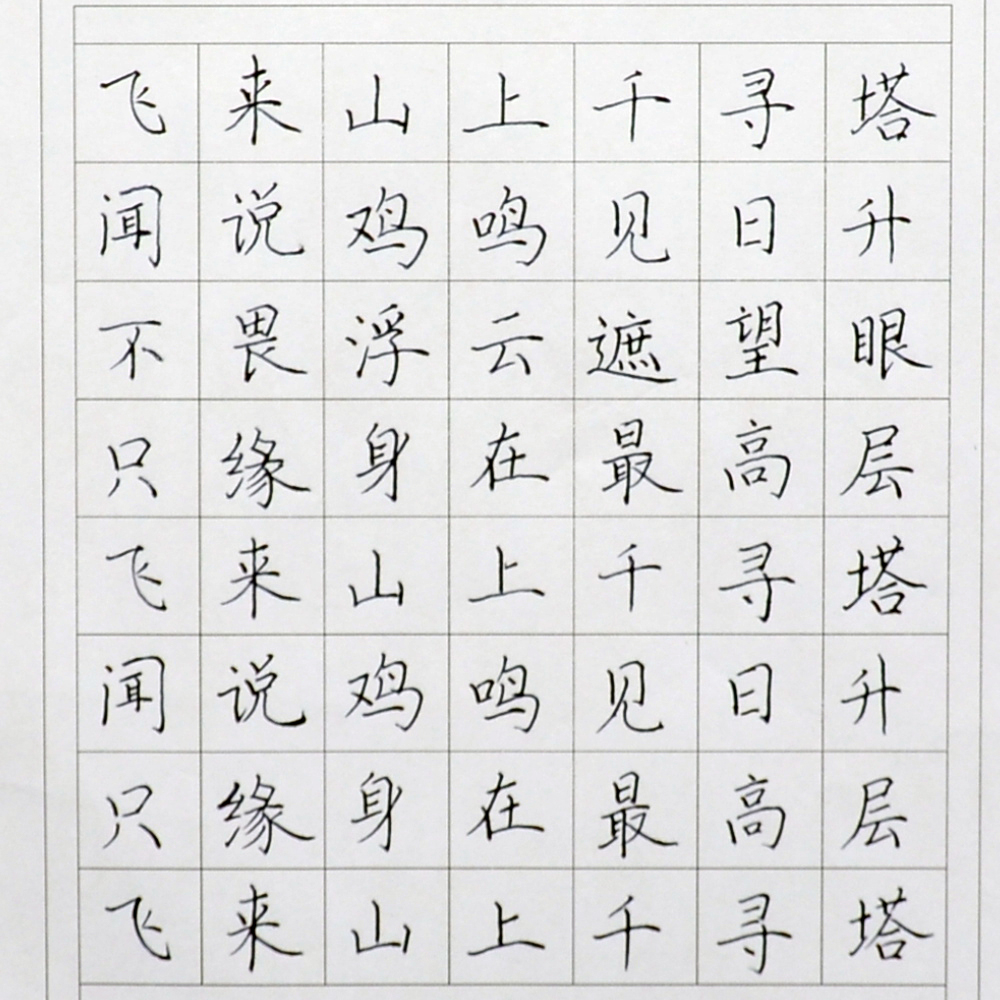 飞来山上千寻塔
闻说鸡鸣见日升
不畏浮云遮望眼
只缘身在最高层
飞来山上千寻塔
闻说鸡鸣见日升
只缘身在最高层
飞来山上千寻塔